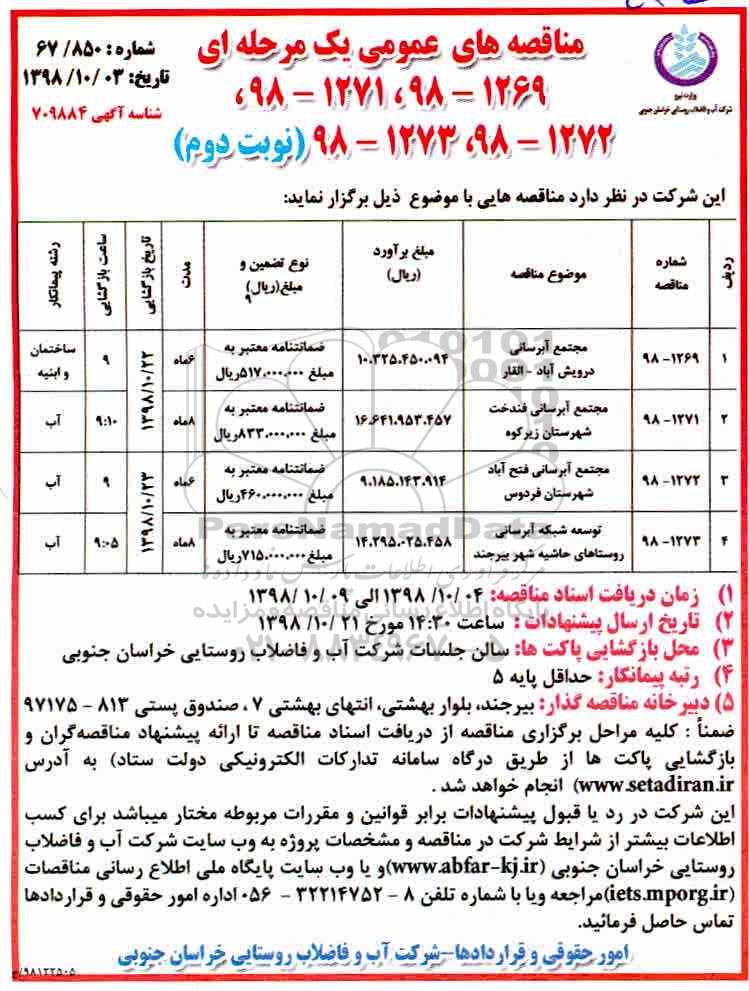 مناقصه های عمومی یک مرحله ای
۱۲۶۹ – ۹۸، ۱۲۷۱ – ۹۸،
۱۲۷۲ – ۹۸، ۱۲۷۳ – ۹۸ (نوبت دوم)
شماره: ۶۷/۸۵۰
تاریخ: ۱۳۹۸/۱۰/۰۳
شناسه آگهی ۷۰۹۸۸۴
وزارت نیرو
شرکت آب و فاضلاب روستایی خراسان جنوبی
این شرکت در نظر دارد مناقصه هایی با موضوع ذیل برگزار نماید:
ردیف | شماره مناقصه | موضوع مناقصه | مبلغ برآورد (ریال) | نوع تضمین و مبلغ(ریال) | مدت | تاریخ بازگشایی | ساعت بازگشایی | رشته پیمانکار
۱ | ۱۲۶۹- ۹۸ | مجتمع آبرسانی درویش آباد - القار | ۱۰.۳۲۵.۴۵۰.۰۹۴ | ضمانتنامه معتبر به مبلغ ۵۱۷.۰۰۰.۰۰۰ریال | ۶ماه | ۱۳۹۸/۱۰/۲۲ | ۹ | ساختمان و ابنیه
۲ | ۱۲۷۱- ۹۸ | مجتمع آبرسانی فندخت شهرستان زیرکوه | ۱۶.۶۴۱.۹۵۳.۴۵۷ | ضمانتنامه معتبر به مبلغ ۸۳۳.۰۰۰.۰۰۰ریال | ۸ماه | ۹:۱۰ | آب
۳ | ۱۲۷۲- ۹۸ | مجتمع آبرسانی فتح آباد شهرستان فردوس | ۹.۱۸۵.۱۴۳.۹۱۴ | ضمانتنامه معتبر به مبلغ ۴۶۰.۰۰۰.۰۰۰ریال | ۶ماه | ۱۳۹۸/۱۰/۲۳ | ۹ | آب
۴ | ۱۲۷۳- ۹۸ | توسعه شبکه آبرسانی روستاهای حاشیه شهر بیرجند | ۱۴.۲۹۵.۰۲۵.۴۵۸ | ضمانتنامه معتبر به مبلغ ۷۱۵.۰۰۰.۰۰۰ریال | ۸ماه | ۹:۰۵ | آب
ParsNamadData
پایگاه اطلاع رسانی مناقصه و مزایده
۱) زمان دریافت اسناد مناقصه: ۰۴ /۱۰/ ۱۳۹۸ الی ۰۹ /۱۰/ ۱۳۹۸
۲) تاریخ ارسال پیشنهادات : ساعت ۱۴:۳۰ مورخ ۲۱ /۱۰/ ۱۳۹۸
۳) محل بازگشایی پاکت ها: سالن جلسات شرکت آب و فاضلاب روستایی خراسان جنوبی
۴) رتبه پیمانکار: حداقل پایه ۵
۵) دبیرخانه مناقصه گذار: بیرجند، بلوار بهشتی، انتهای بهشتی ۷ ، صندوق پستی ۸۱۳ – ۹۷۱۷۵
ضمناً : کلیه مراحل برگزاری مناقصه از دریافت اسناد مناقصه تا ارائه پیشنهاد مناقصه‌گران و
بازگشایی پاکت ها از طریق درگاه سامانه تدارکات الکترونیکی دولت ستاد) به آدرس
www.setadiran.ir) انجام خواهد شد .
این شرکت در رد یا قبول پیشنهادات برابر قوانین و مقررات مربوطه مختار میباشد برای کسب
اطلاعات بیشتر از شرایط شرکت در مناقصه و مشخصات پروژه به وب سایت شرکت آب و فاضلاب
روستایی خراسان جنوبی (www.abfar-kj.ir)و یا وب سایت پایگاه ملی اطلاع رسانی مناقصات
(iets.mporg.ir)مراجعه ویا با شماره تلفن ۸ – ۳۲۲۱۴۷۵۲ – ۰۵۶ اداره امور حقوقی و قراردادها
تماس حاصل فرمائید.
امور حقوقی و قراردادها–شرکت آب و فاضلاب روستایی خراسان جنوبی
۹۸۱۲۲۵۰۵/ح